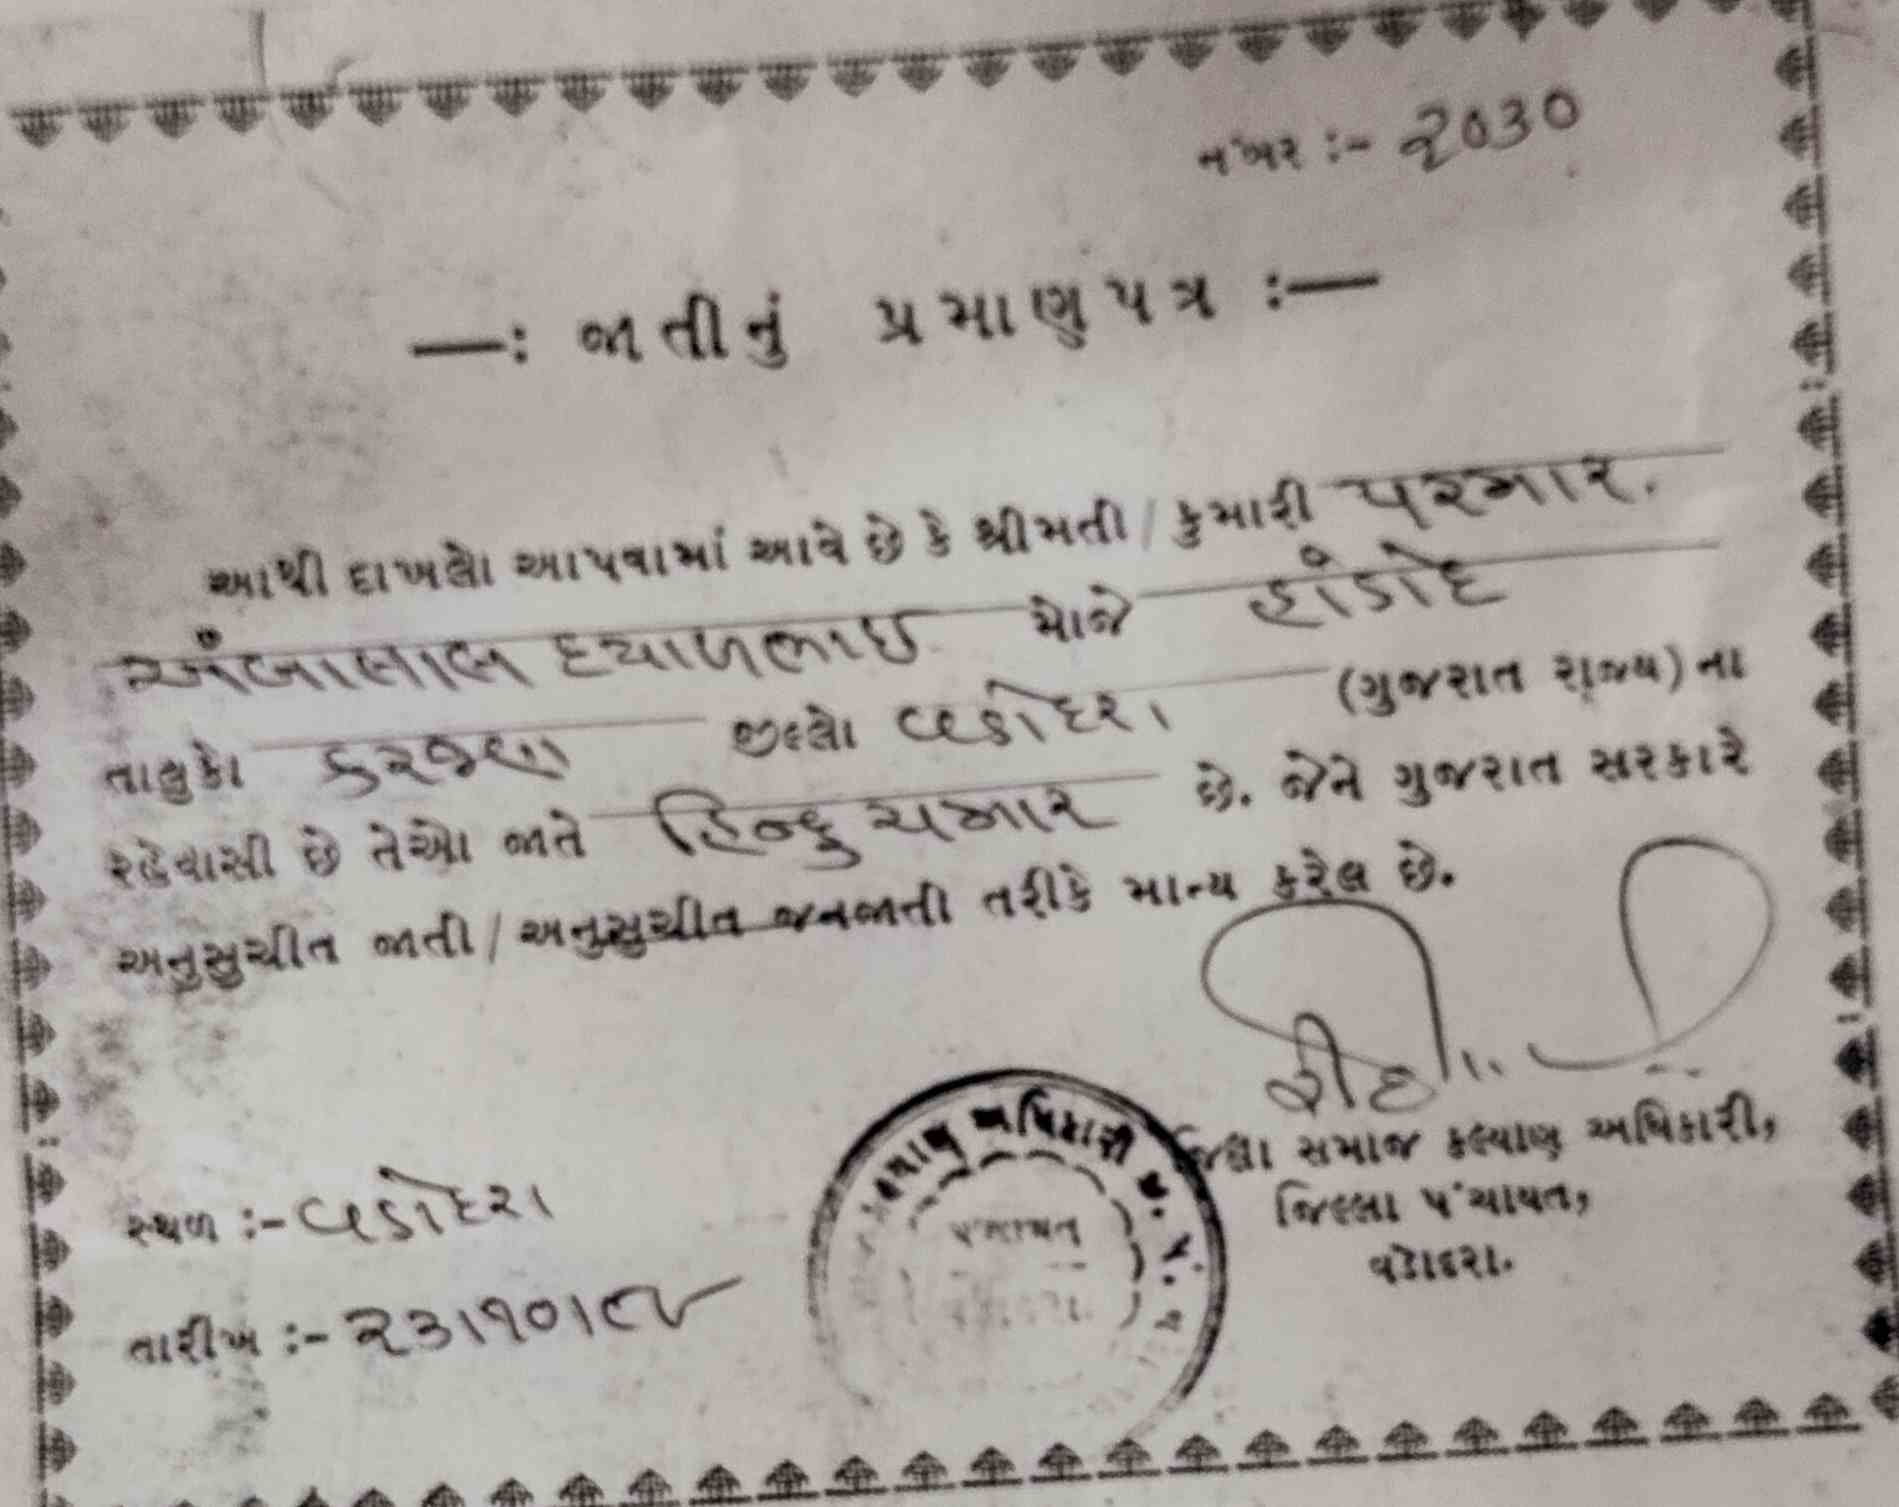 નંબર :- ૨૦૩૦
—: જાતીનું પ્રમાણપત્ર :—
આથી દાખલો આપવામાં આવે છે કે શ્રીમતી / કુમારી પરમાર.
અંબાલાલ દયાળભાઇ મોજે હાંડોદ
તાલુકો કરજણ જીલ્લો વડોદરા (ગુજરાત રાજ્ય) ના
રહેવાસી છે તેઓ જાતે હિન્દુ ચમાર છે. જેને ગુજરાત સરકારે
અનુસુચીત જાતી / અનુસુચીત જનજાતી તરીકે માન્ય કરેલ છે.
કલ્યાણ અધિકારી જી. પં.
પંચાયત
જિલ્લા સમાજ કલ્યાણ અધિકારી,
જિલ્લા પંચાયત,
વડોદરા.
સ્થળ :- વડોદરા
તારીખ :- ૨૩/૧૦/૯૨